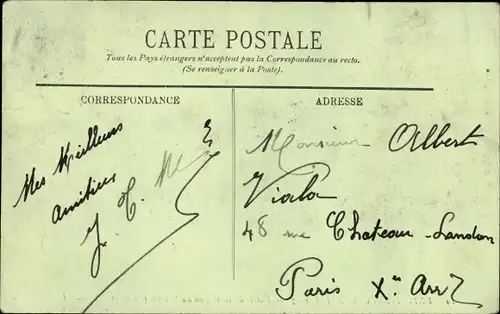 CARTE POSTALE
Tous les Pays étrangers n'acceptent pas la Correspondance au recto.
(Se renseigner à la Poste).
CORRESPONDANCE
Mes Meilleurs
Amitiés
ADRESSE
Monsieur Albert
Viala
48 rue Château-Landon
Paris Xe Arr